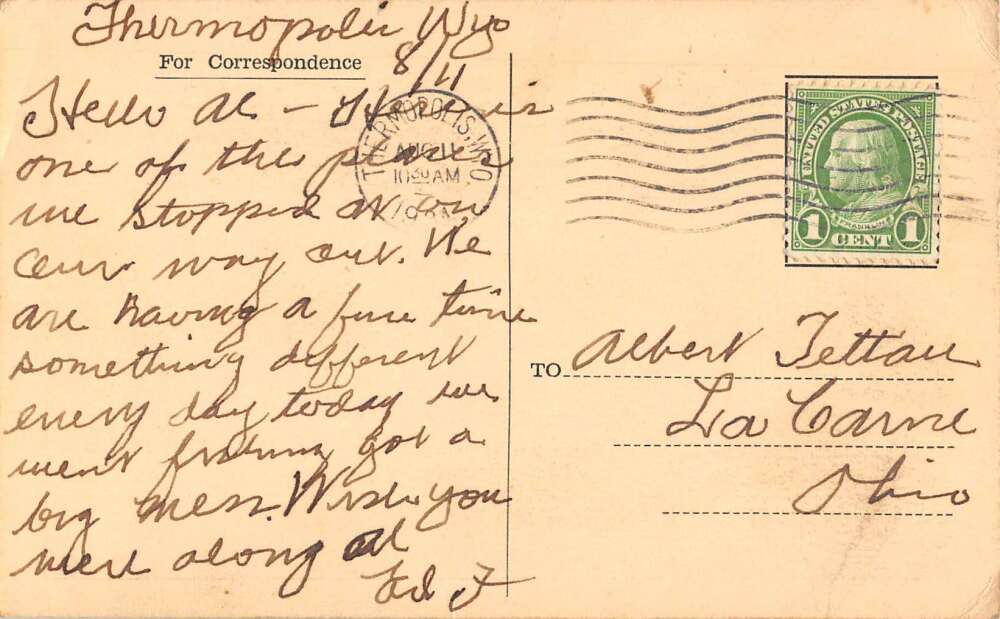 Thermopolis Wyo
8/11
For Correspondence
Hello Al - Here is
one of the places
we stopped at on
our way out. We
are having a fine time
something different
every day today we
went fishing got a
big mess. Wish you
were along Al
Ed. F
THERMOPOLIS, WYO
AUG 11
10 30 AM
UNITED STATES POSTAGE
FRANKLIN
1 CENT 1
TO Albert Tettau
La Carne
Ohio